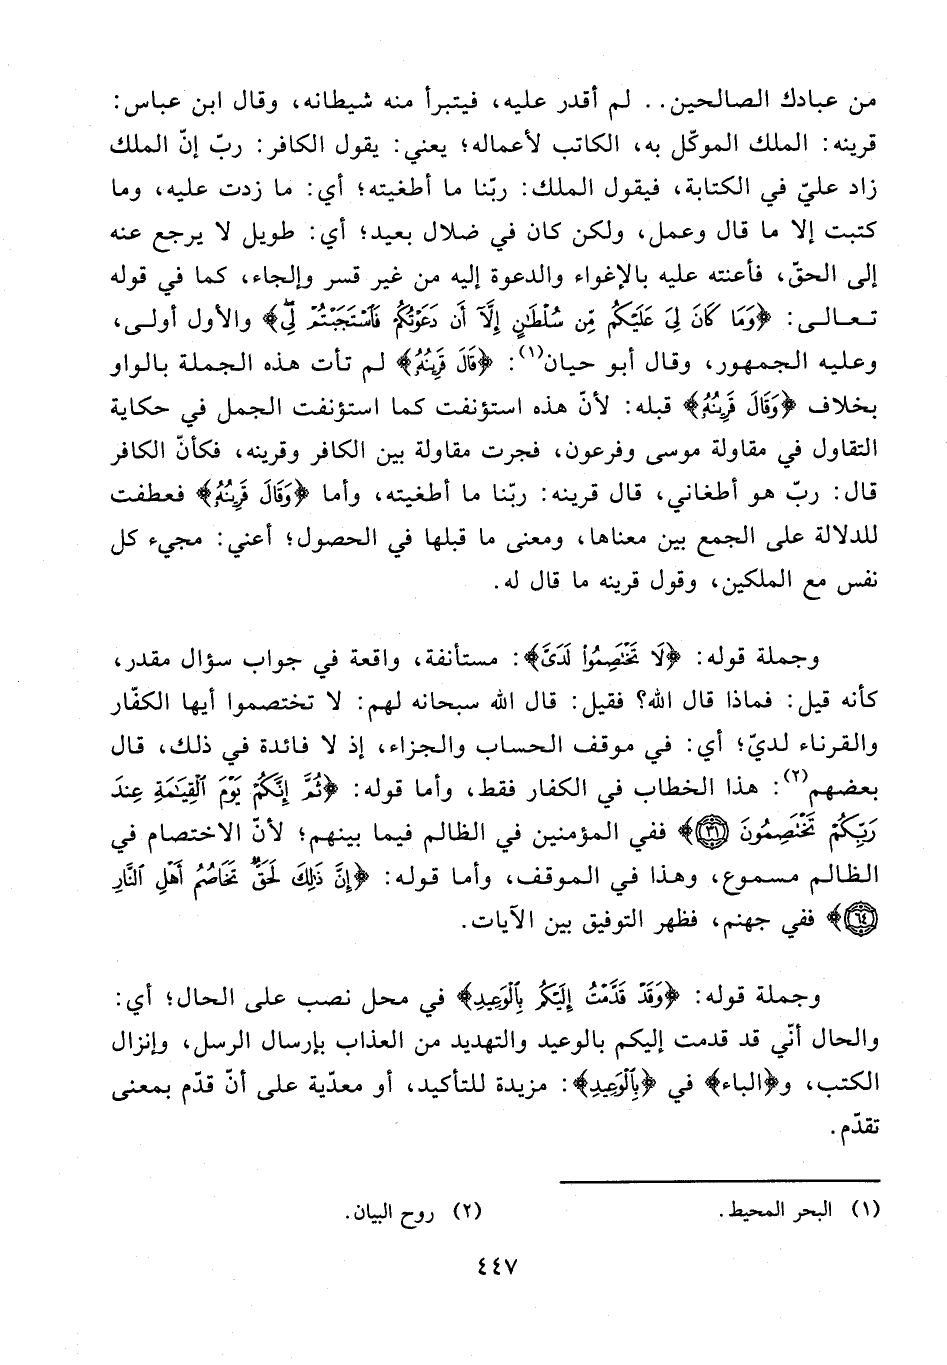 من عبادك الصالحين.. لم أقدر عليه، فيتبرأ منه شيطانه، وقال ابن عباس:
قرينه: الملك الموكّل به، الكاتب لأعماله؛ يعني: يقول الكافر: ربّ إنّ الملك
زاد عليّ في الكتابة، فيقول الملك: ربّنا ما أطغيته؛ أي: ما زدت عليه، وما
كتبت إلا ما قال وعمل، ولكن كان في ضلال بعيد؛ أي: طويل لا يرجع عنه
إلى الحقّ، فأعنته عليه بالإغواء والدعوة إليه من غير قسر وإلجاء، كما في قوله
تعالى: ﴿وَمَا كَانَ لِيَ عَلَيْكُم مِّن سُلْطَٰنٍ إِلَّآ أَن دَعَوْتُكُمْ فَٱسْتَجَبْتُمْ لِىۖ﴾ والأول أولى،
وعليه الجمهور، وقال أبو حيان(١): ﴿قَالَ قَرِينُهُۥ﴾ لم تأت هذه الجملة بالواو
بخلاف ﴿وَقَالَ قَرِينُهُۥ﴾ قبله: لأنّ هذه استؤنفت كما استؤنفت الجمل في حكاية
التقاول في مقاولة موسى وفرعون، فجرت مقاولة بين الكافر وقرينه، فكأنّ الكافر
قال: ربّ هو أطغاني، قال قرينه: ربّنا ما أطغيته، وأما ﴿وَقَالَ قَرِينُهُۥ﴾ فعطفت
للدلالة على الجمع بين معناها، ومعنى ما قبلها في الحصول؛ أعني: مجيء كل
نفس مع الملكين، وقول قرينه ما قال له.
وجملة قوله: ﴿لَا تَخْتَصِمُواْ لَدَىَّ﴾: مستأنفة، واقعة في جواب سؤال مقدر،
كأنه قيل: فماذا قال الله؟ فقيل: قال الله سبحانه لهم: لا تختصموا أيها الكفّار
والقرناء لديّ؛ أي: في موقف الحساب والجزاء، إذ لا فائدة في ذلك، قال
بعضهم(٢): هذا الخطاب في الكفار فقط، وأما قوله: ﴿ثُمَّ إِنَّكُمْ يَوْمَ ٱلْقِيَٰمَةِ عِندَ
رَبِّكُمْ تَخْتَصِمُونَ ٣١﴾ ففي المؤمنين في الظالم فيما بينهم؛ لأنّ الاختصام في
الظالم مسموع، وهذا في الموقف، وأما قوله: ﴿إِنَّ ذَٰلِكَ لَحَقٌّ تَخَاصُمُ أَهْلِ ٱلنَّارِ
٦٤﴾ ففي جهنم، فظهر التوفيق بين الآيات.
وجملة قوله: ﴿وَقَدْ قَدَّمْتُ إِلَيْكُم بِٱلْوَعِيدِ﴾ في محل نصب على الحال؛ أي:
والحال أنّي قد قدمت إليكم بالوعيد والتهديد من العذاب بإرسال الرسل، وإنزال
الكتب، و﴿الباء﴾ في ﴿بِٱلْوَعِيدِ﴾: مزيدة للتأكيد، أو معدّية على أنّ قدّم بمعنى
تقدّم.
(١) البحر المحيط. (٢) روح البيان.
٤٤٧